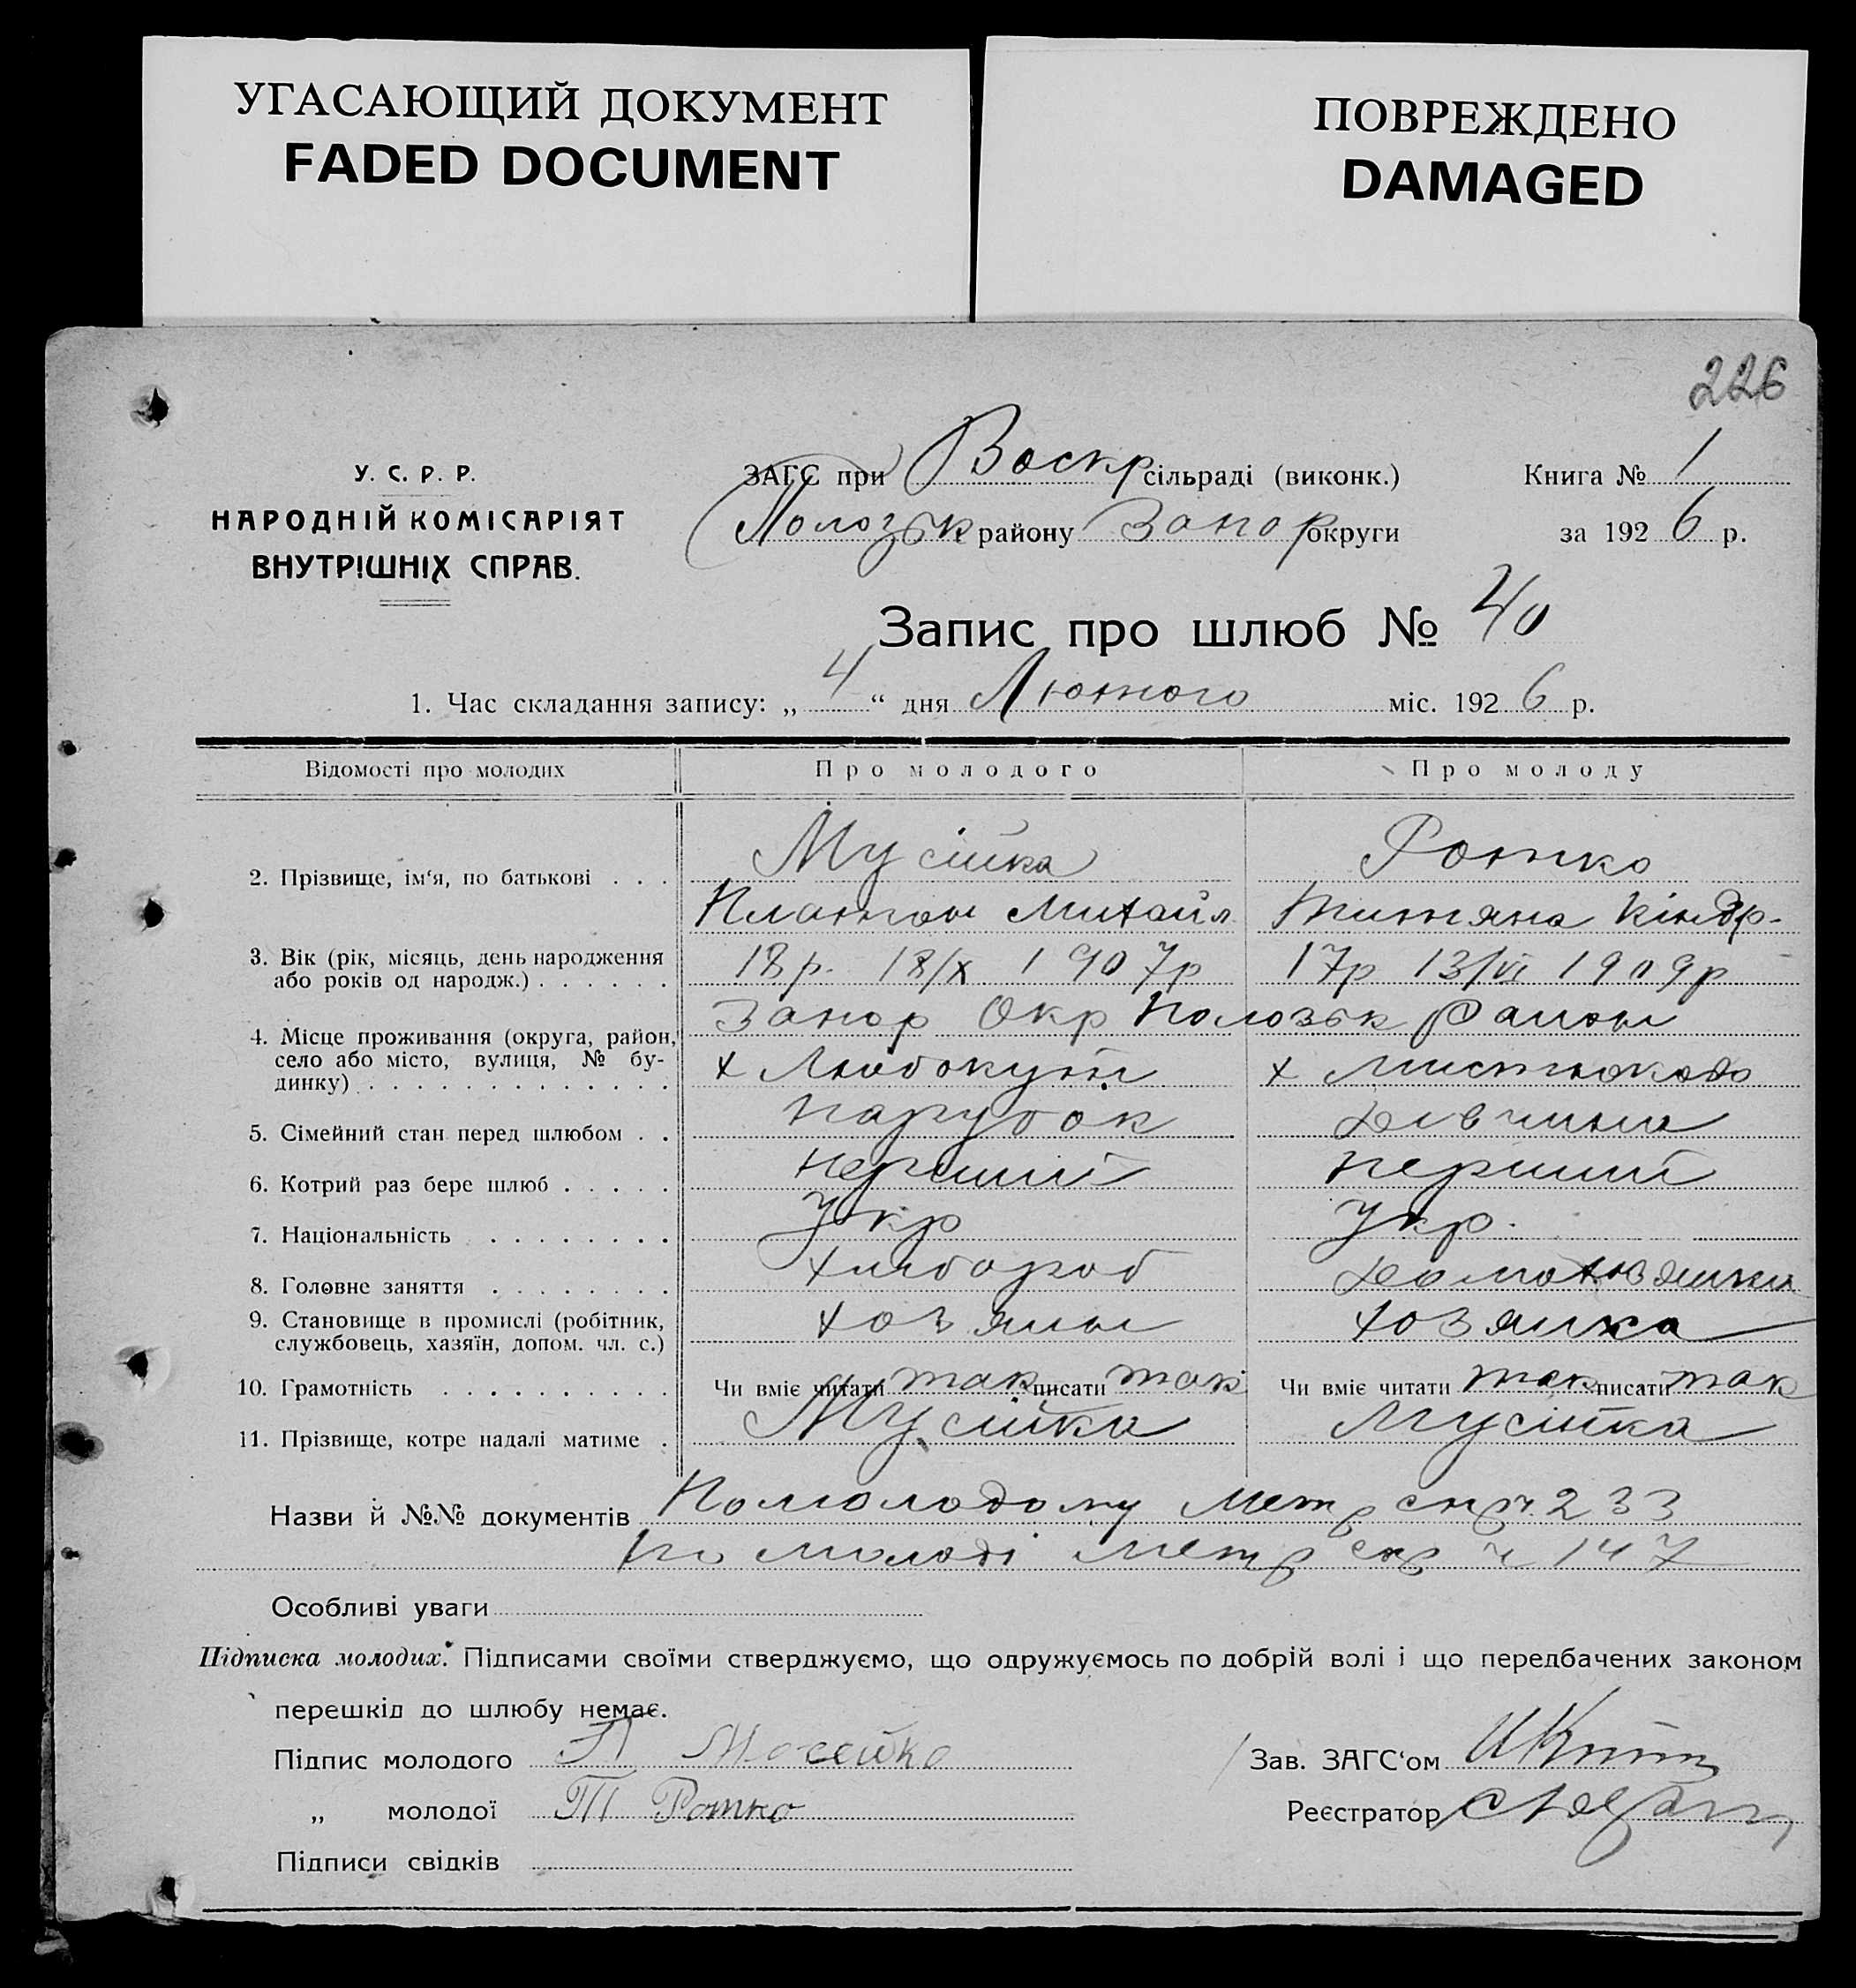 УГАСАЮЩИЙ ДОКУМЕНТ
FADED DOCUMENT
ПОВРЕЖДЕНО
DAMAGED
226
У. С. Р. Р.
НАРОДНІЙ КОМІСАРІЯТ
ВНУТРІШНІХ СПРАВ.
ЗАГС при Воскр сільраді (виконк.)
Полозьк району Запор округи
Книга № 1
за 1926 р.
Запис про шлюб № 40
1. Час складання запису: „ 4 “ дня Лютого міс. 1926 р.
Відомості про молодих Про молодого Про молоду
2. Прізвище, ім‘я, по батькові . . . Мусійка Ротко
Платон Михайл Титяна Кіндр.
3. Вік (рік, місяць, день народження 18р. 18/X 1907р 17р 13/VI 1909р
або років од народж.) . . . . . .
Запор Окр Полозьк Район
4. Місце проживання (округа, район,
село або місто, вулиця, № бу- х Любокут х
динку) . . . . . . . . . . . . .
5. Сімейний стан перед шлюбом . . парубок дівчина
6. Котрий раз бере шлюб . . . . . перший перший
7. Національність . . . . . . . . Укр Укр.
8. Головне заняття . . . . . . . . хлібороб
9. Становище в промислі (робітник, хозяин хозяйка
службовець, хазяїн, допом. чл. с.)
10. Грамотність . . . . . . . . . . Чи вміє читати так писати так Чи вміє читати так писати так
11. Прізвище, котре надалі матиме . Мусійка Мусійка
Назви й №№ документів По молодому Метр ч. 233
по молоді метр ч 147
Особливі уваги
Підписка молодих. Підписами своїми стверджуємо, що одружуємось по добрій волі і що передбачених законом
перешкід до шлюбу немає.
Підпис молодого П Мосейко
Зав. ЗАГС‘ом
„ молодої Т Ротко
Реєстратор
Підписи свідків